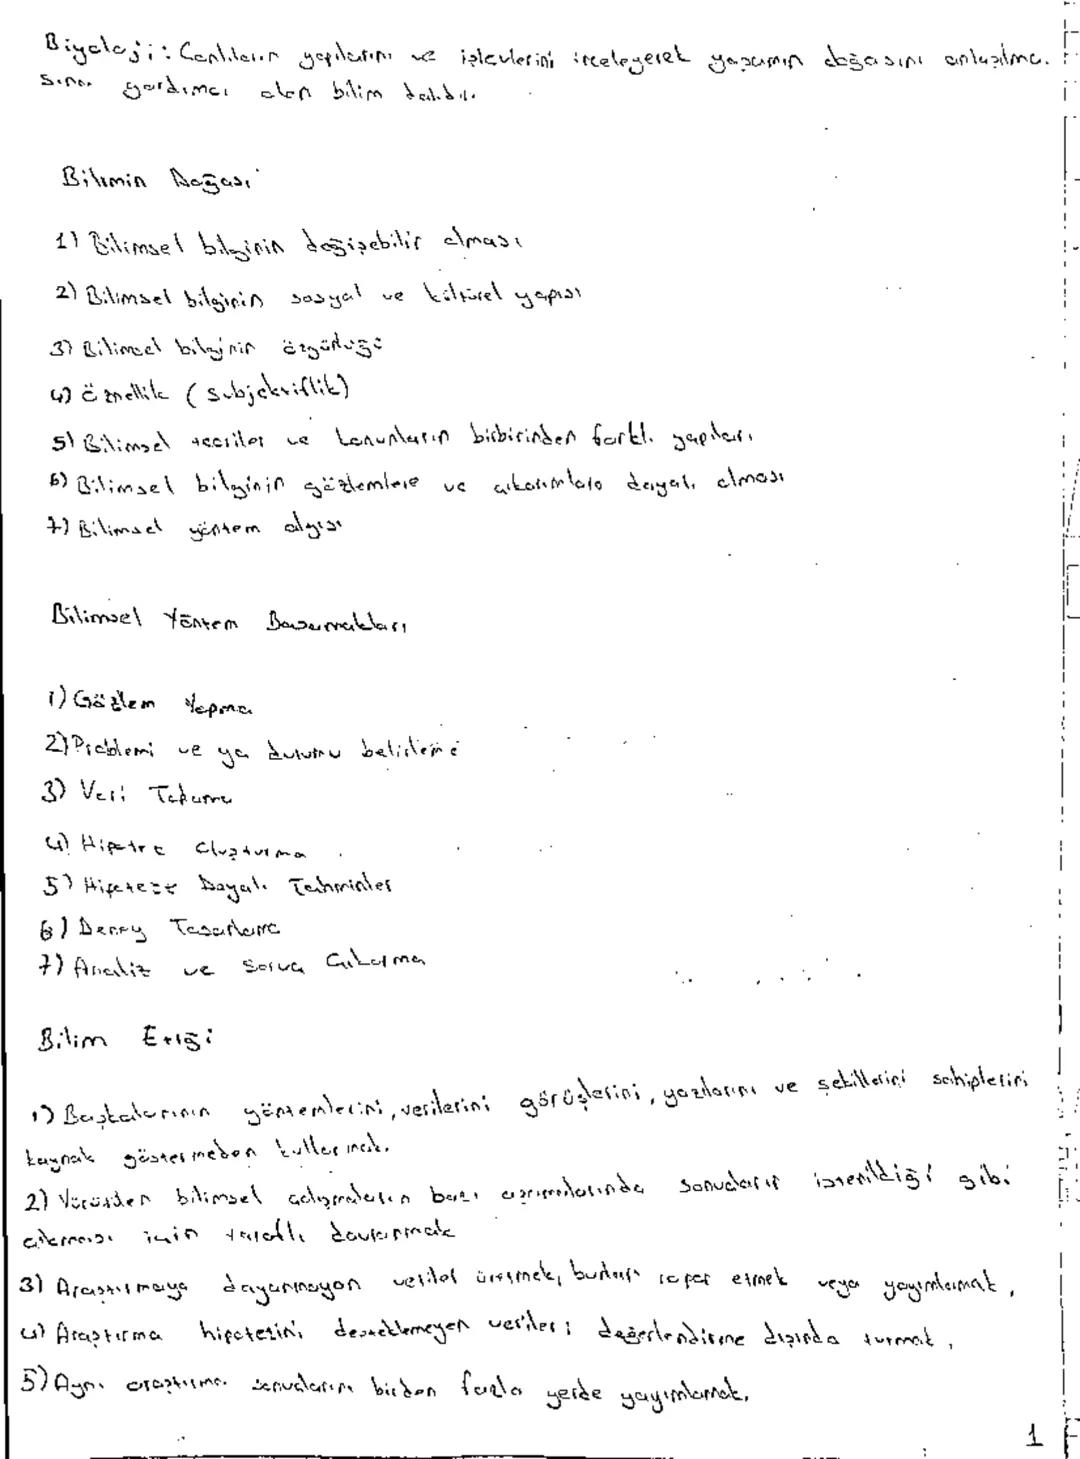 Biyoloji: Canlıların yapılarını ve işlevlerini inceleyerek yaşamın doğasını anlaşılma-
sına yardımcı olan bilim dalıdır.
Bilimin Doğası
1) Bilimsel bilginin değişebilir olması
2) Bilimsel bilginin sosyal ve kültürel yapısı
3) Bilimsel bilginin özgünlüğü
4) Öznellik (subjektiflik)
5) Bilimsel teoriler ve kanunların birbirinden farklı yapıları
6) Bilimsel bilginin gözlemlere ve çıkarımlara dayalı olması
7) Bilimsel yöntem algısı
Bilimsel Yöntem Basamakları
1) Gözlem Yapma
2) Problemi ve ya durumu belirleme
3) Veri Toplama
4) Hipotez Oluşturma
5) Hipoteze Dayalı Tahminler
6) Deney Tasarlama
7) Analiz ve Sonuç Çıkarma
Bilim Etiği
1) Başkalarının yöntemlerini, verilerini görüşlerini, yazılarını ve şekillerini sahiplerini
kaynak göstermeden kullanmak.
2) Yürütülen bilimsel çalışmaların bazı aşamalarında sonuçların istenildiği gibi
çıkması için taraflı davranmak
3) Araştırmaya dayanmayan veriler üretmek, bunları rapor etmek veya yayımlamak,
4) Araştırma hipotezini desteklemeyen verileri değerlendirme dışında tutmak,
5) Aynı araştırma sonuçlarını birden fazla yerde yayımlamak.
1